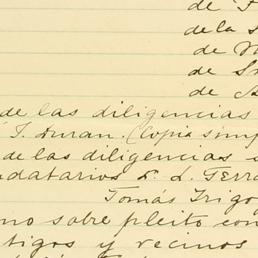 de F
de la s
de
de
de
de las diligencias
T. Duran. (Copia simp
de las diligencias
datarios D. L. Ferra
Tomás Trigo
no sobre pleito con
tigos y vecinos